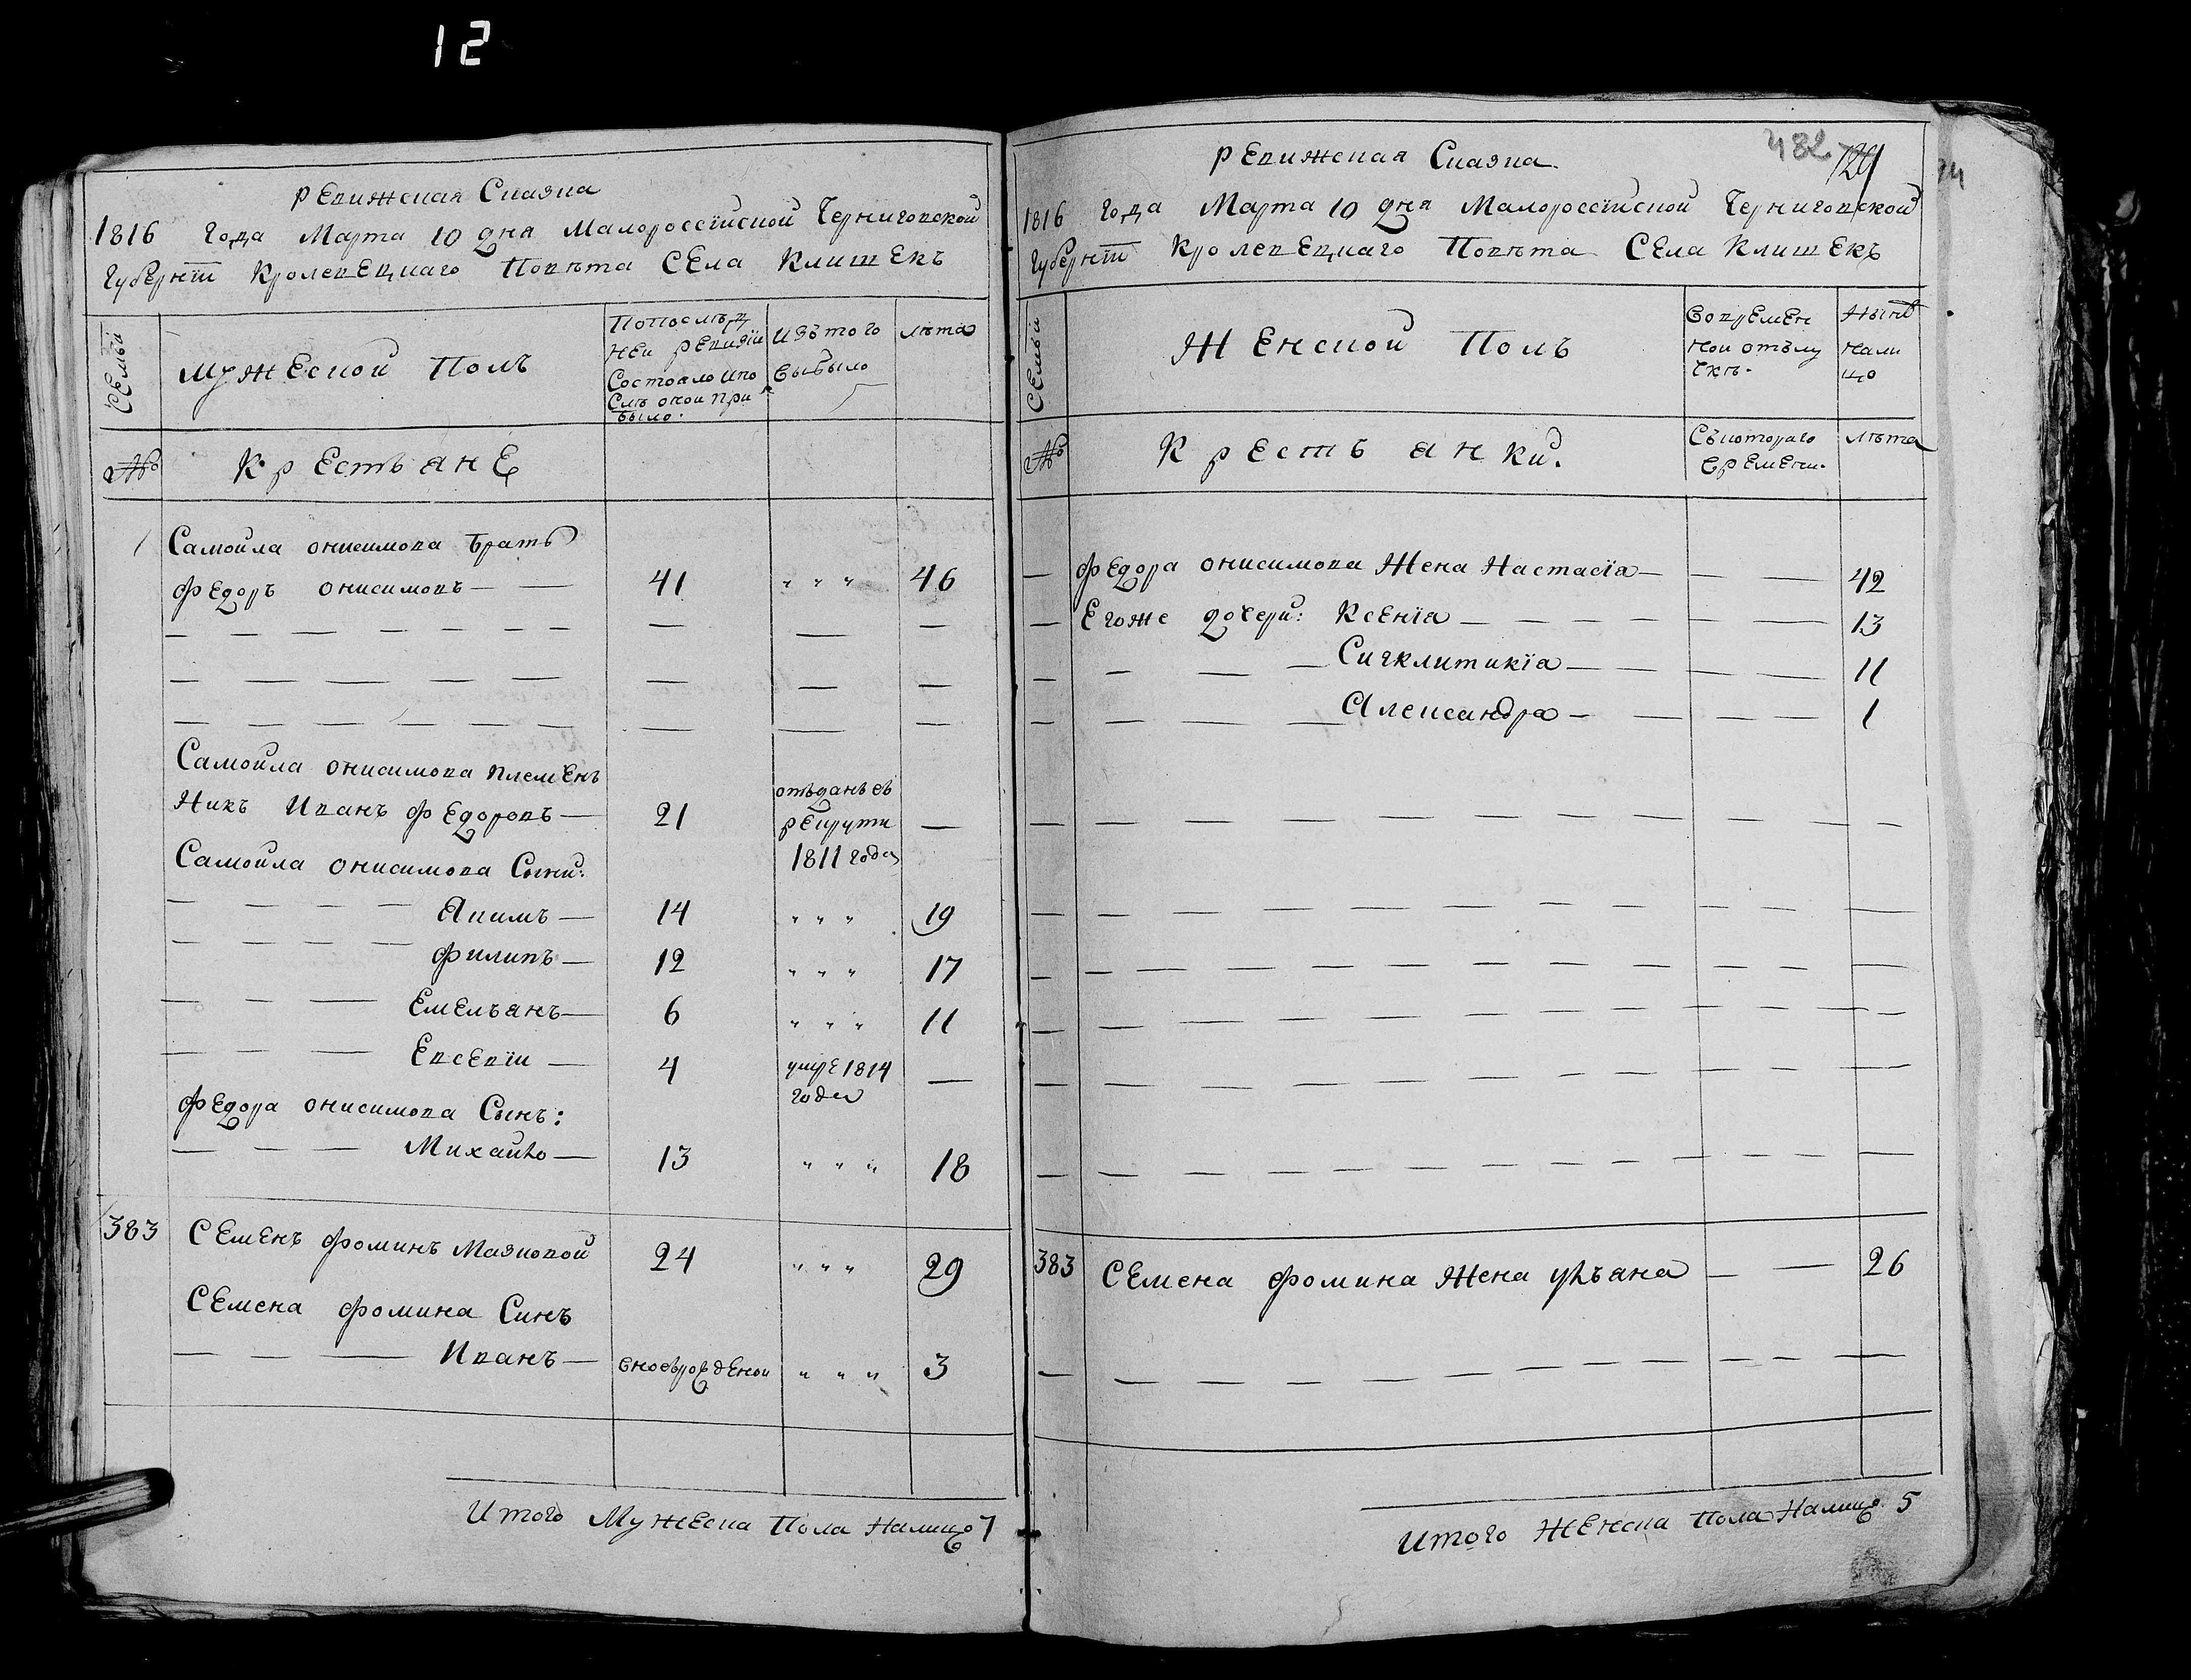 12
Ревижская Сказка
1816 года Марта 10 дня Малороссїйской Черниговской
Губернїи Кролевецкаго Повѣта Села Клишекъ
Семьи
Мужеской Полъ
Попослѣд
ней ревизїи
Состояло ипо
слѣ оной при
было.
Изътого
выбыло
лѣта
№
Крестьяне
1
Самойла Онисимова братъ
Федоръ Онисимовъ — —
41
" " "
46
Самойла Онисимова племѣнъ
никъ Иванъ Федоровъ —
21
отъданъ въ
рекруты
1811 года
—
Самойла Онисимова Сыны:
Якимъ —
14
" " "
19
Филипъ —
12
" " "
17
Емельянъ —
6
" " "
11
Евсевїи —
4
умре 1814
года
—
Федора Онисимова Сынъ:
Михайло —
13
" " "
18
383
Семенъ Фоминъ Мазновой
24
" " "
29
Семена Фомина Синъ
Иванъ —
вноворожденой
" " "
3
Итого Мужеска Пола Налицо 7
482
Ревижская Сказка
1816 года Марта 10 дня Малоросїйской Черниговской
Губернїи Кролевецкаго Повѣта Села Клишекъ
Семьи
Женской Полъ
Вовремен
ной отълу
чкѣ.
Нынѣ
Нали
цо
№
Крестьянки.
Съкотораго
времени.
лѣта
— Федора Онисимова Жена Настасїя — — —
42
— Егоже дочери: Ксенїя — — —
13
Сигклитикїа — — —
11
Александра — — —
1
383
Семена Фомина Жена Ульяна — —
26
Итого Женска Пола Налицо 5